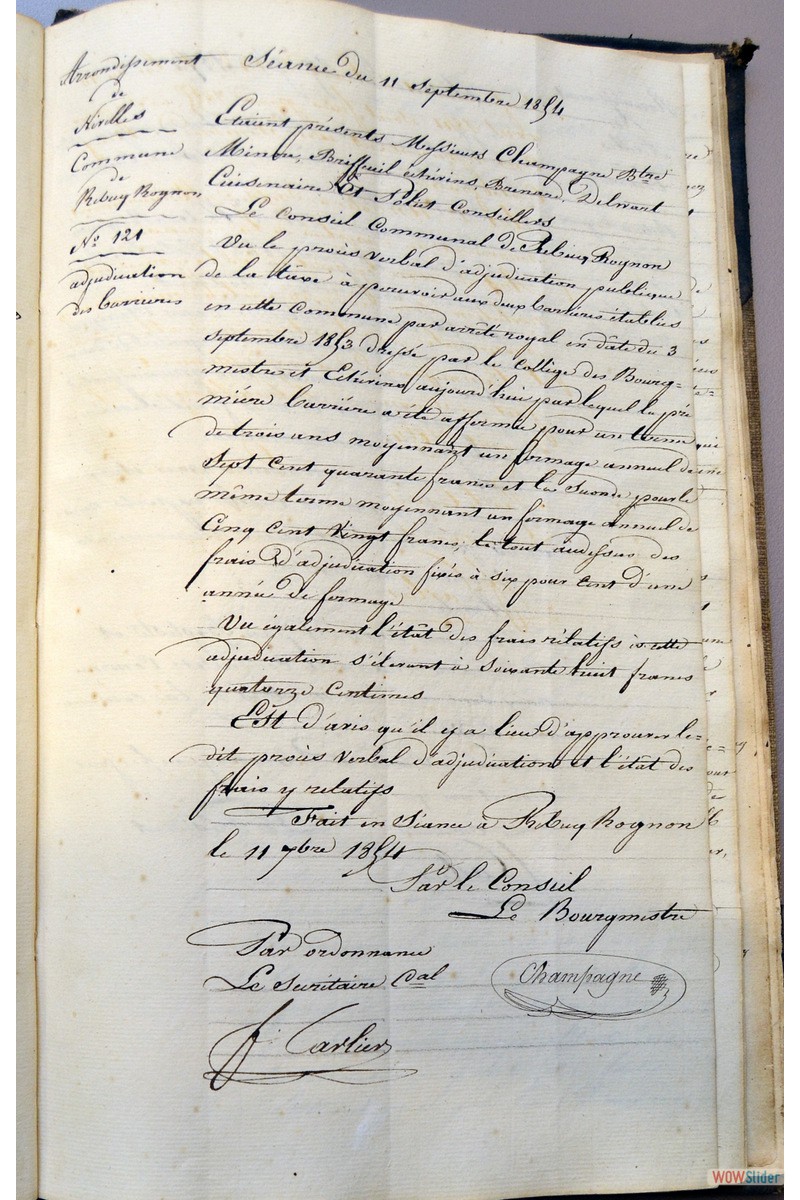 Arrondissement
de
Nivelles
Commune
de
Rebecq Rognon
N° 121
adjudication
des barrières
Séance du 11 septembre 1854
Etaient présents Messieurs Champagne Btre
Minne, Briffeuil échévins, Brenard, Delwart
Cuisenaire Et Polut Conseillers
Le Conseil Communal de Rebecq Rognon
Vu le procès verbal d'adjudication publique
de la taxe à percevoir aux deux barrières établies
en cette Commune par arrêté royal en date du 3
septembre 1853 dressé par le collège des Bourg=
mestre et Echévins aujourd'hui par lequel la pre
mière barrière a été affermée pour un terme
de trois ans moyennant un fermage annuel de
sept cent quarante francs et la seconde pour le
même terme moyennant un fermage annuel de
Cinq cent vingt francs, le tout audessus des
frais d'adjudication fixés à six pour cent d'une
année de fermage
Vu également l'état des frais rélatifs à cette
adjudication s'élevant à soixante huit francs
quatorze centimes
Est d'avis qu'il y a lieu d'approuver le=
dit procès verbal d'adjudication et l'état des
frais y relatifs
Fait en séance à Rebecq Rognon
le 11 7bre 1854
Par le Conseil
Le Bourgmestre
Par ordonnance
Le Secrétaire Cal
Champagne
f. Carlier
WOWSlider